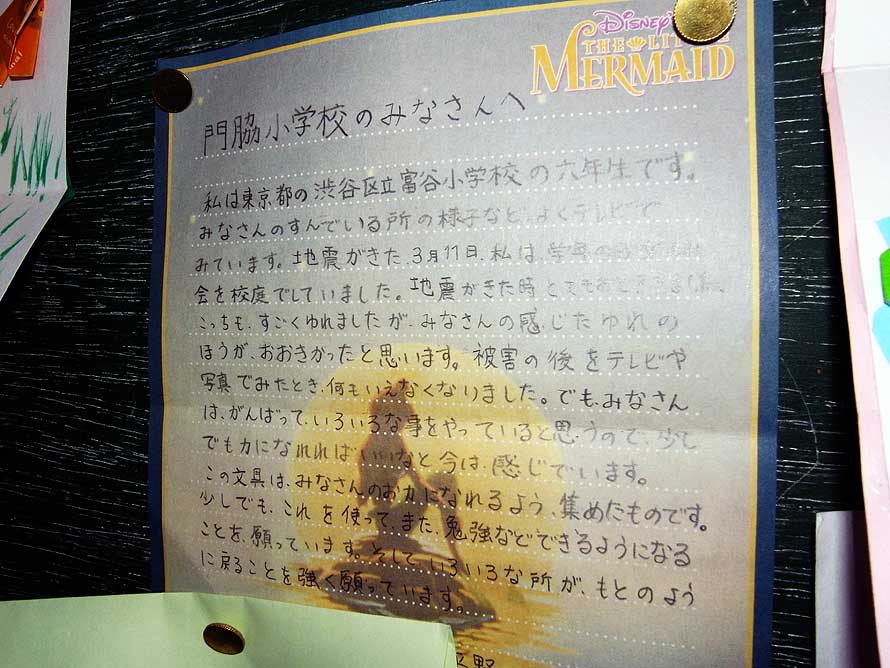 Disney's
THE LITTLE
MERMAID
門脇小学校のみなさんへ
私は東京都の渋谷区立富谷小学校の六年生です。
みなさんのすんでいる所の様子など、よくテレビで
みています。地震がきた、3月11日、私は、学年の
会を校庭でしていました。地震がきた時とても
こっちも、すごくゆれましたが、みなさんの感じたゆれの
ほうが、おおきかったと思います。被害の後をテレビや
写真でみたとき、何もいえなくなりました。でも、みなさん
は、がんばって、いろいろな事をやっていると思うので、少し
でも力になれればいいなと今は、感じでいます。
この文具は、みなさんのお力になれるよう、集めたものです。
少しでも、これを使って、また、勉強などできるようになる
ことを、願っています。そして、いろいろな所が、もとのよう
に戻ることを強く願っています。